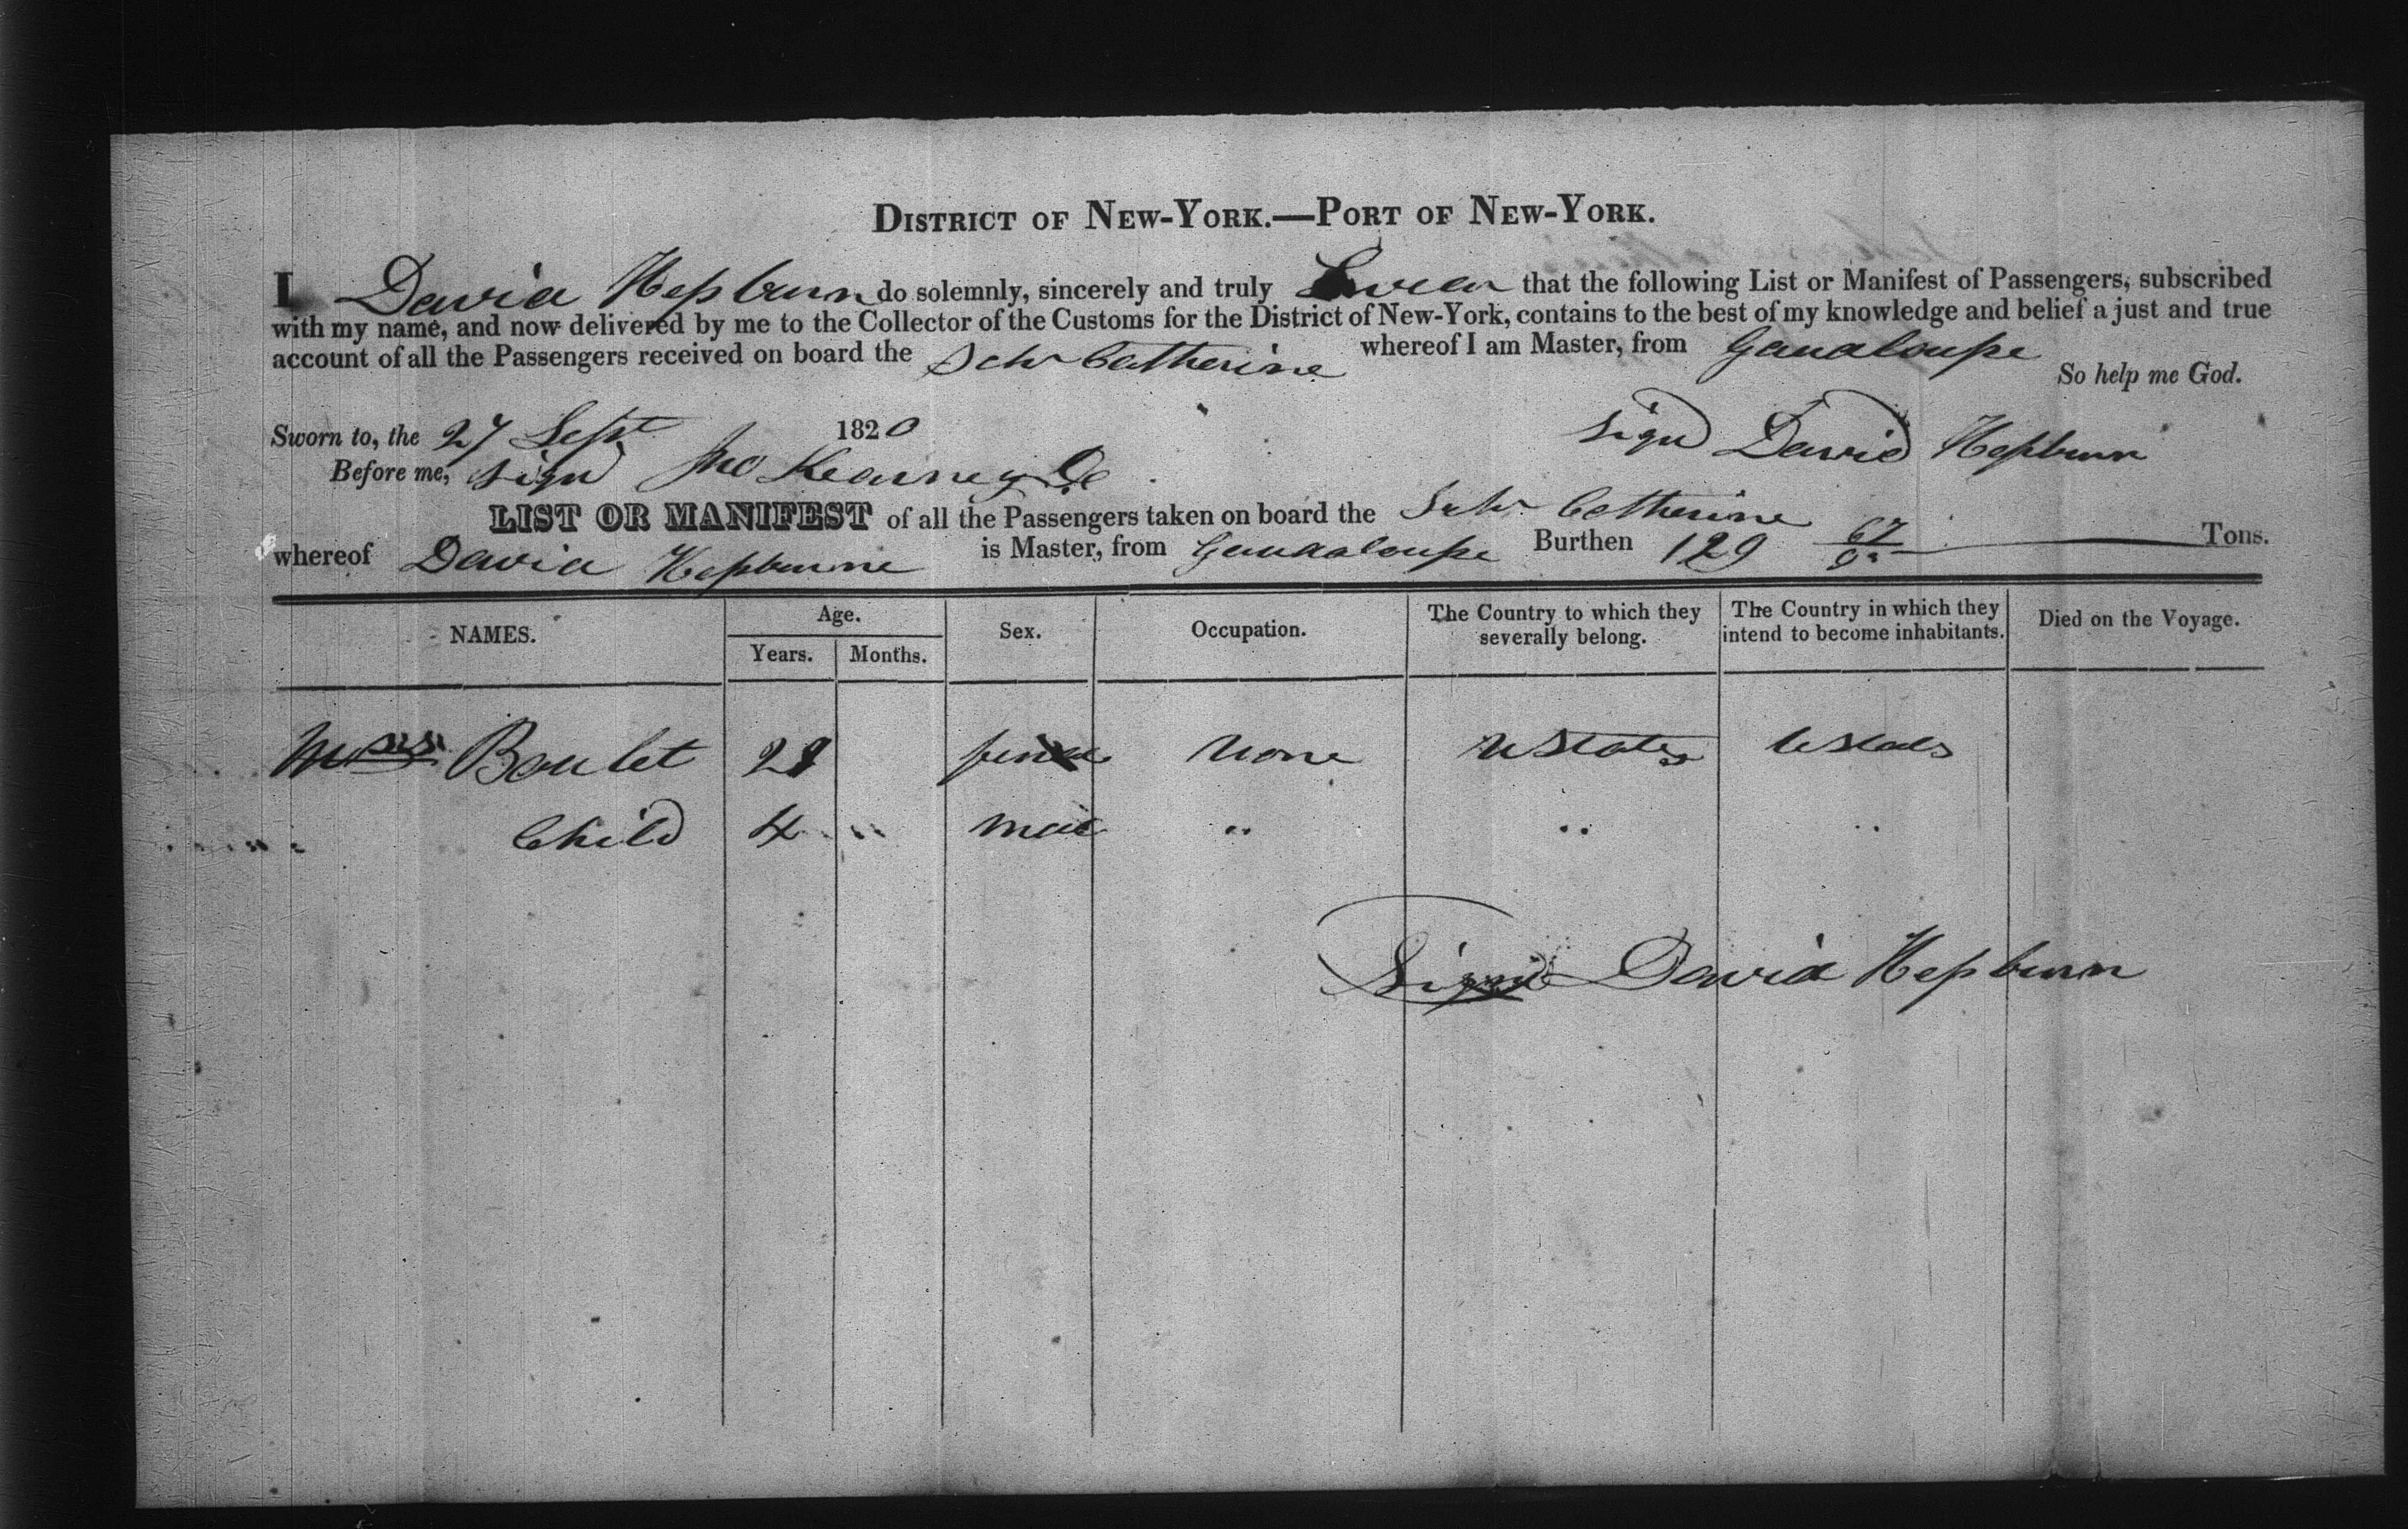 DISTRICT OF NEW-YORK.—PORT OF NEW-YORK.
I David Hepburn do solemnly, sincerely and truly Swear that the following List or Manifest of Passengers, subscribed
with my name, and now delivered by me to the Collector of the Customs for the District of New-York, contains to the best of my knowledge and belief a just and true
account of all the Passengers received on board the Schr Catherine whereof I am Master, from Gaudaloupe
So help me God.
Sworn to, the 27 Sept 1820 sign David Hepburn
Before me, sign Jno Kearney
LIST OR MANIFEST of all the Passengers taken on board the Schr Catherine
whereof David Hepburne is Master, from Gaudaloupe Burthen 129 67/95 Tons.
NAMES. Age. Years. Months. Sex. Occupation. The Country to which they severally belong. The Country in which they intend to become inhabitants. Died on the Voyage.
Boulet 28 None UStates UStates
Child 4 " male " " "
Sign David Hepburn